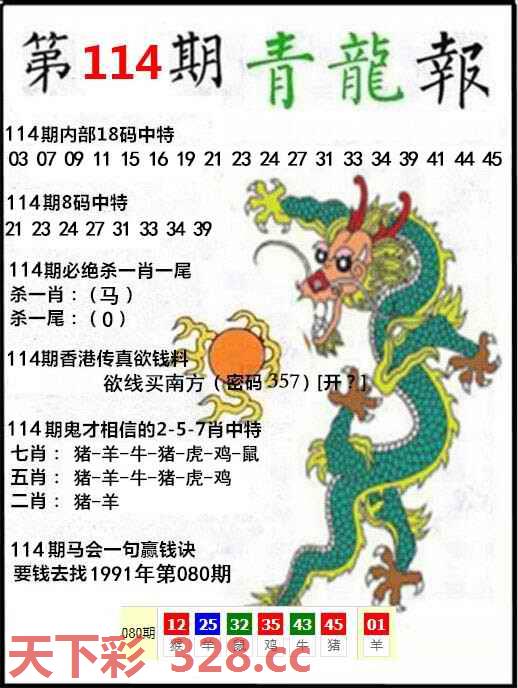 第114期 青龍報
114期内部18码中特
03 07 09 11 15 16 19 21 23 24 27 31 33 34 39 41 44 45
114期8码中特
21 23 24 27 31 33 34 39
114期必绝杀一肖一尾
杀一肖：（马）
杀一尾：（0）
114期香港传真欲钱料
欲线买南方（密码357）[开？]
114期鬼才相信的2-5-7肖中特
七肖：猪-羊-牛-猪-虎-鸡-鼠
五肖：猪-羊-牛-猪-虎-鸡
二肖：猪-羊
114期马会一句赢钱诀
要钱去找1991年第080期
080期 12 25 32 35 43 45 01
猴 羊 鼠 鸡 牛 猪 羊
天下彩 328.cc